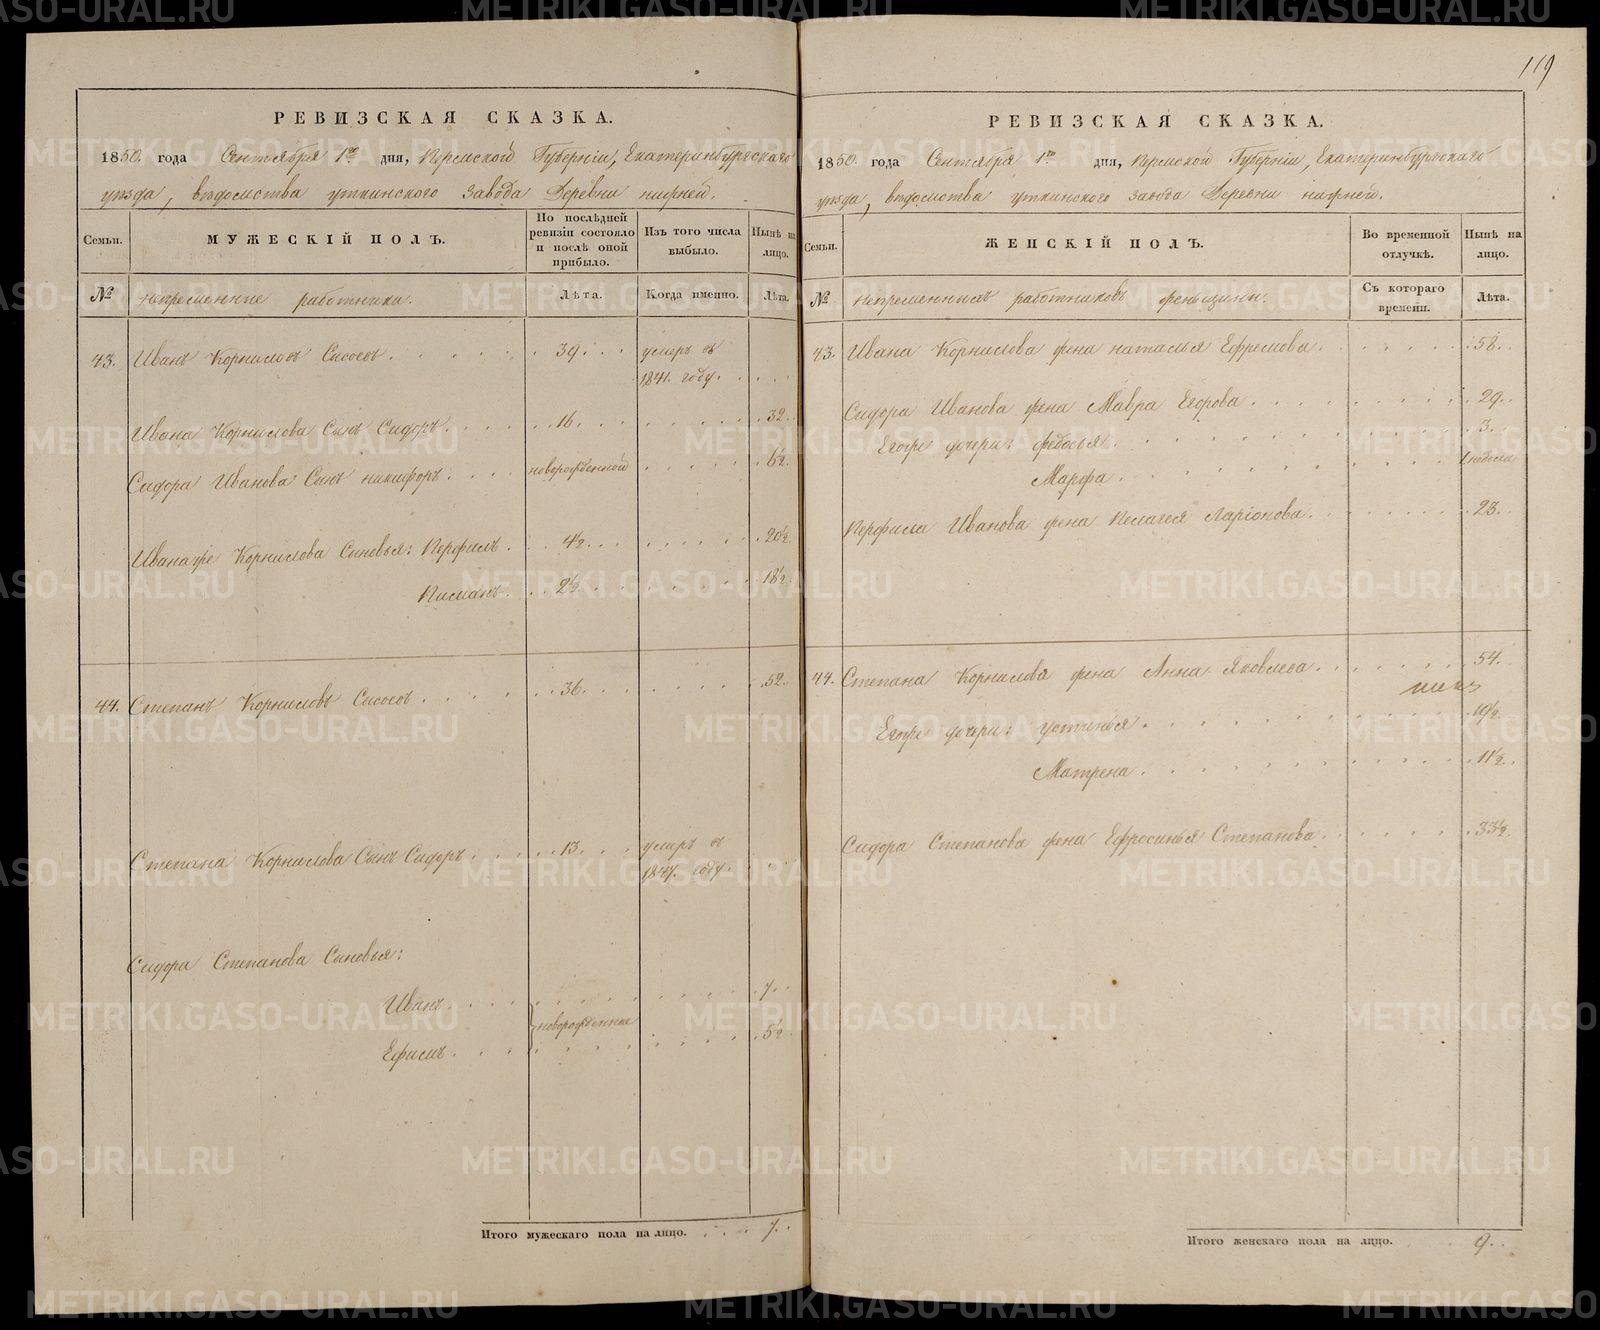 119
РЕВИЗСКАЯ СКАЗКА.
1850. года Сентября 1го дня, Пермской Губерніи, Екатеринбургскаго
уѣзда, вѣдомства уткинского завода Деревни нижней.
Семьи.
МУЖЕСКІЙ ПОЛЪ.
По послѣдней ревизіи состояло и послѣ оной прибыло.
Изъ того числа выбыло.
Нынѣ на лицо.
№
непременные работники.
Лѣта.
Когда именно.
Лѣта.
43. Иванъ Корниловъ Сысоевъ . . . 39. умеръ въ
1841. году.
Ивана Корнилова Сынъ Сидоръ. 16. 32.
Сидора Иванова Сынъ никифоръ. новорожденной 6½
Иванаже Корнилова Сыновья: Перфилъ. 4½. 20½.
Пименъ. 2½. 18½
44. Степанъ Корниловъ Сысоевъ. 36. 52.
Степана Корнилова Сынъ Сидоръ. 13. умеръ въ
1847. году.
Сидора Степанова Сыновья:
Иванъ. 7.
новорожденные
Ефимъ. 5½
Итого мужескаго пола на лицо. 7.
РЕВИЗСКАЯ СКАЗКА.
1850. года Сентября 1го дня, Пермской Губерніи, Екатеринбургского
уѣзда, вѣдомства уткинского завода Деревни нижней.
Семьи.
ЖЕНСКІЙ ПОЛЪ.
Во временной отлучкѣ.
Нынѣ на лицо.
№
непременныхъ работниковъ женщины.
Съ котораго времени.
Лѣта.
43. Ивана Корнилова жена наталья Ефремова. 58.
Сидора Иванова жена Мавра Егорова. 29.
Егоже дочери: федосья. 3.
Марфа. недели
Перфила Иванова жена Пелагея Ларіонова. 23.
44. Степана Корнилова жена Анна Яковлева. 54.
Егоже дочери: устинья. 19½
Матрена. 11½.
Сидора Степанова жена Ефросинья Степанова. 33½.
Итого женскаго пола на лицо. 9.
METRIKI.GASO-URAL.RU